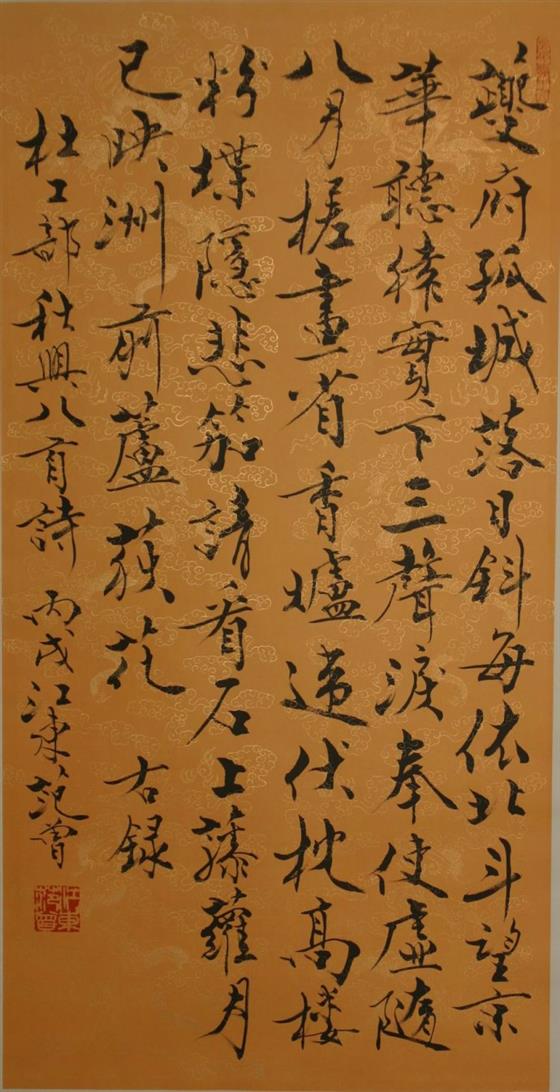 夔府孤城落日斜每依北斗望京
華聽猿實下三聲淚奉使虛隨
八月槎畫省香爐違伏枕高樓
粉堞隱悲笳請看石上藤蘿月
已映洲前蘆荻花 右錄
杜工部秋興八首詩 丙戌江東范曾
江東范曾